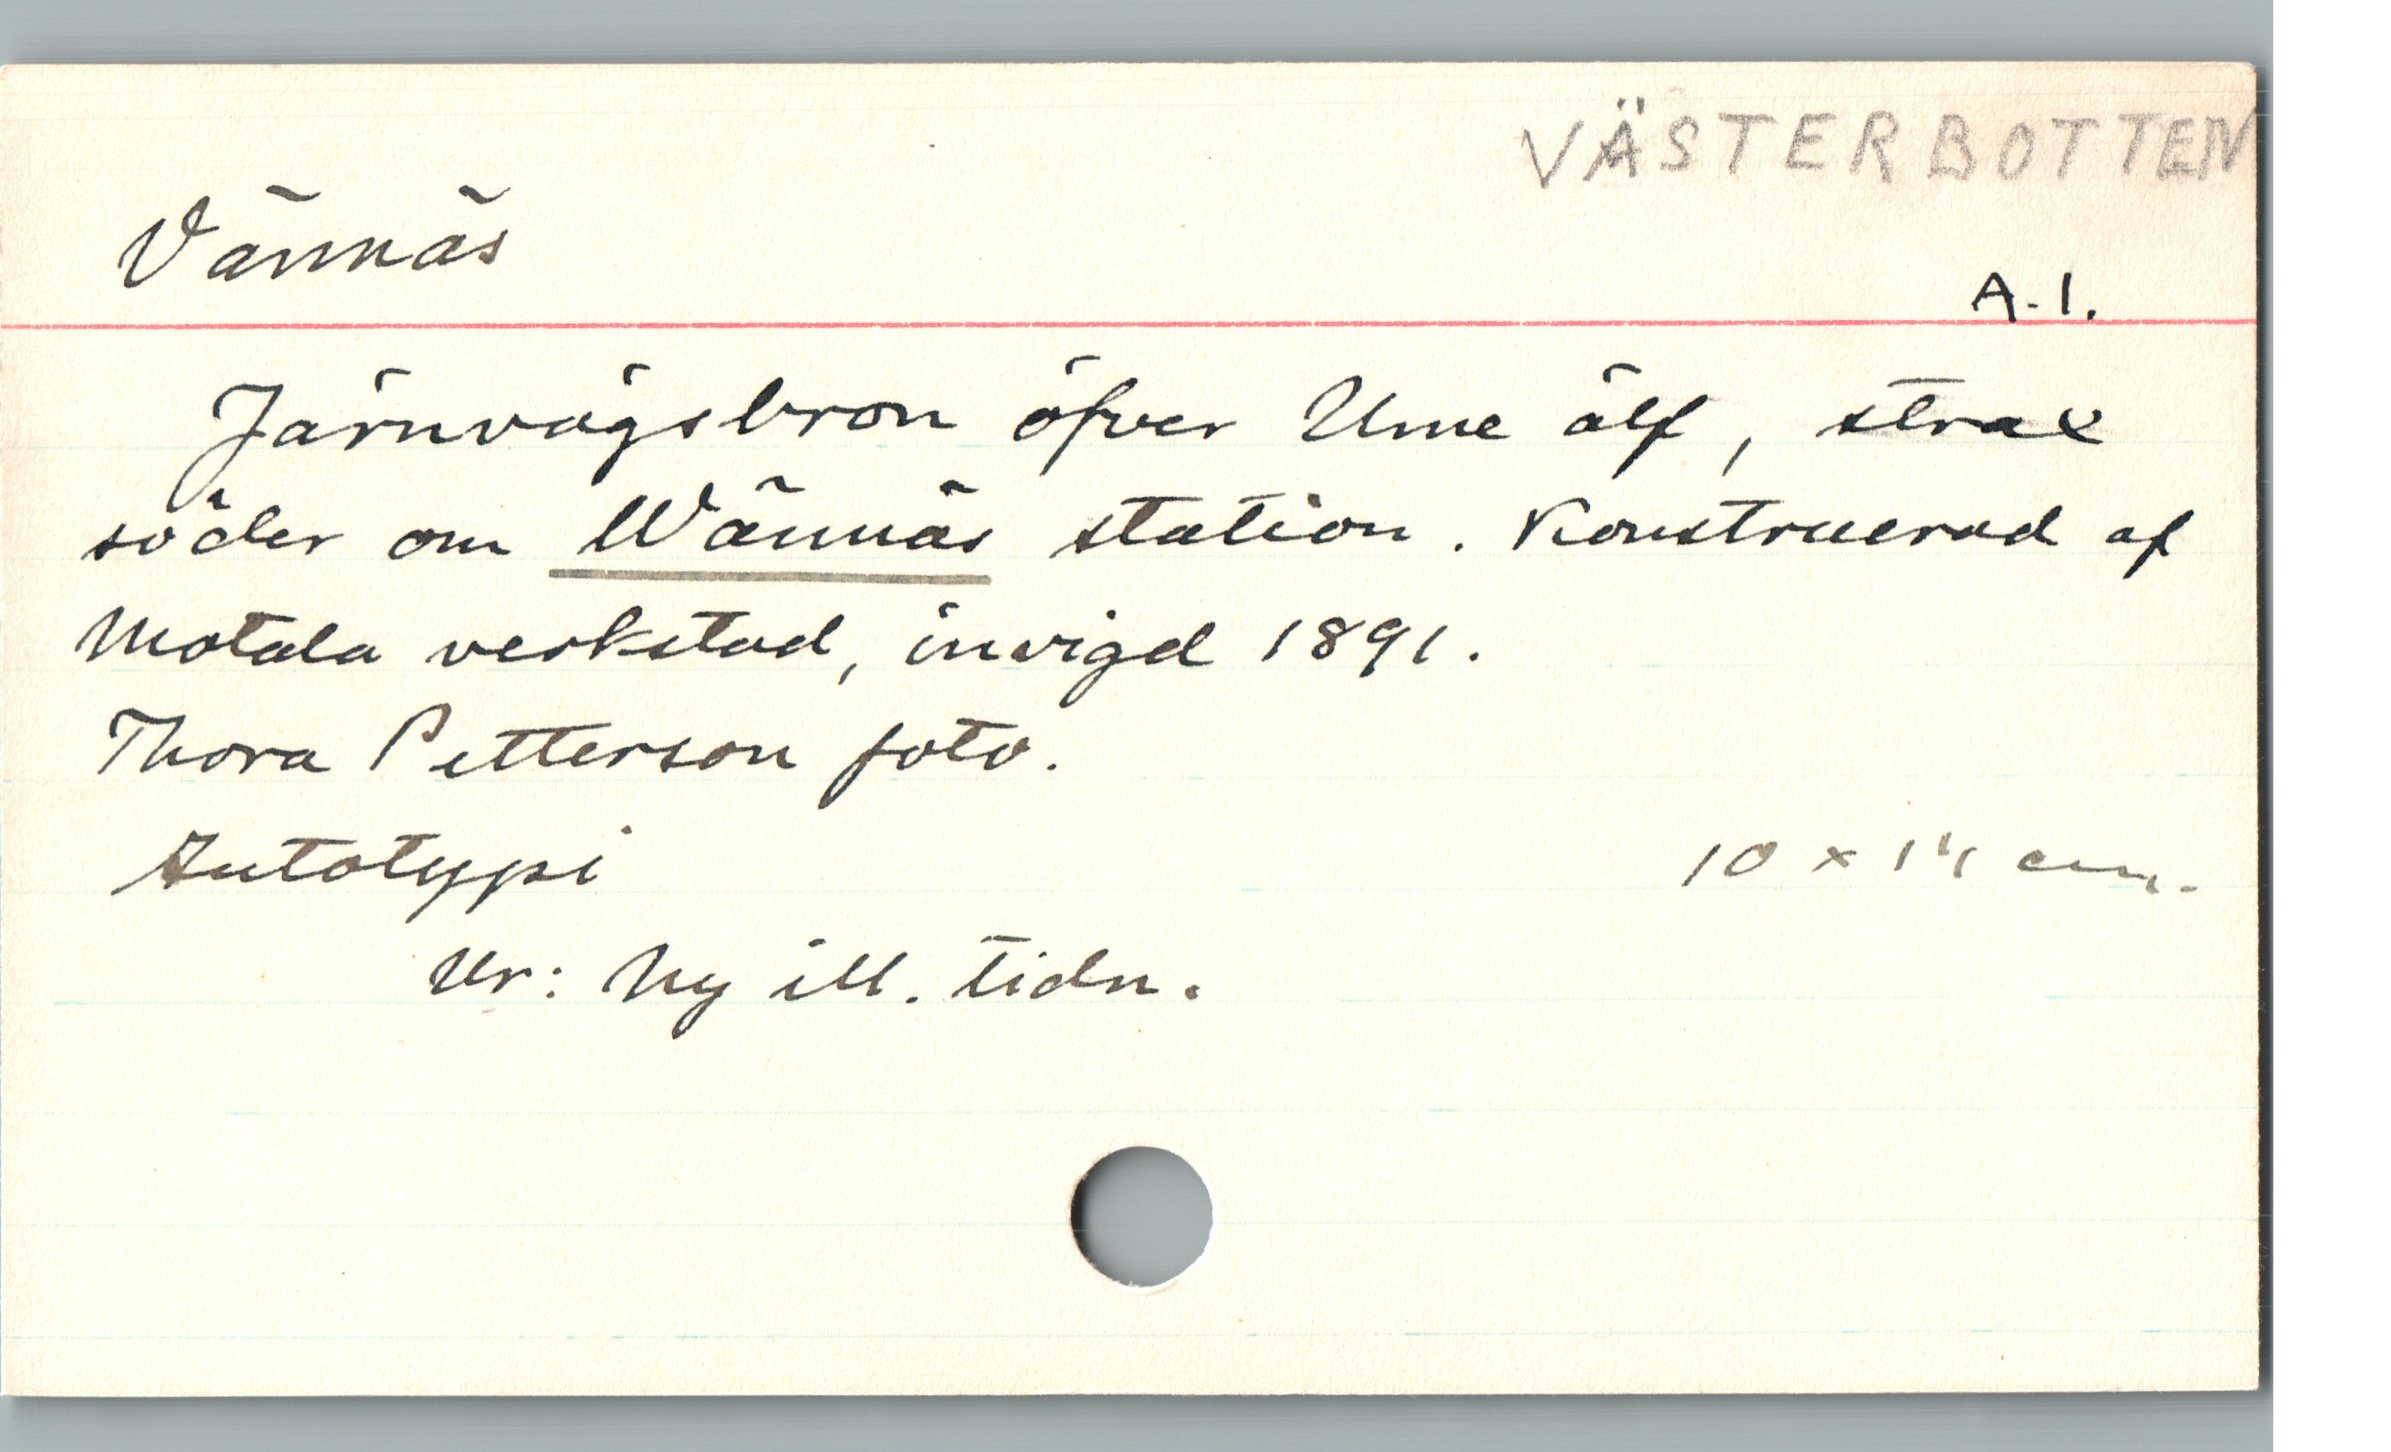 VÄSTERBOTTEN
Vännäs
A.1.
Järnvägsbron öfver Ume älf, strax
söder om Wännäs station. Konstruerad af
Motala verkstad, invigd 1891.
Thora Petterson foto.
Autotypi
10 x 14 cm.
Ur: Ny ill. tidn.